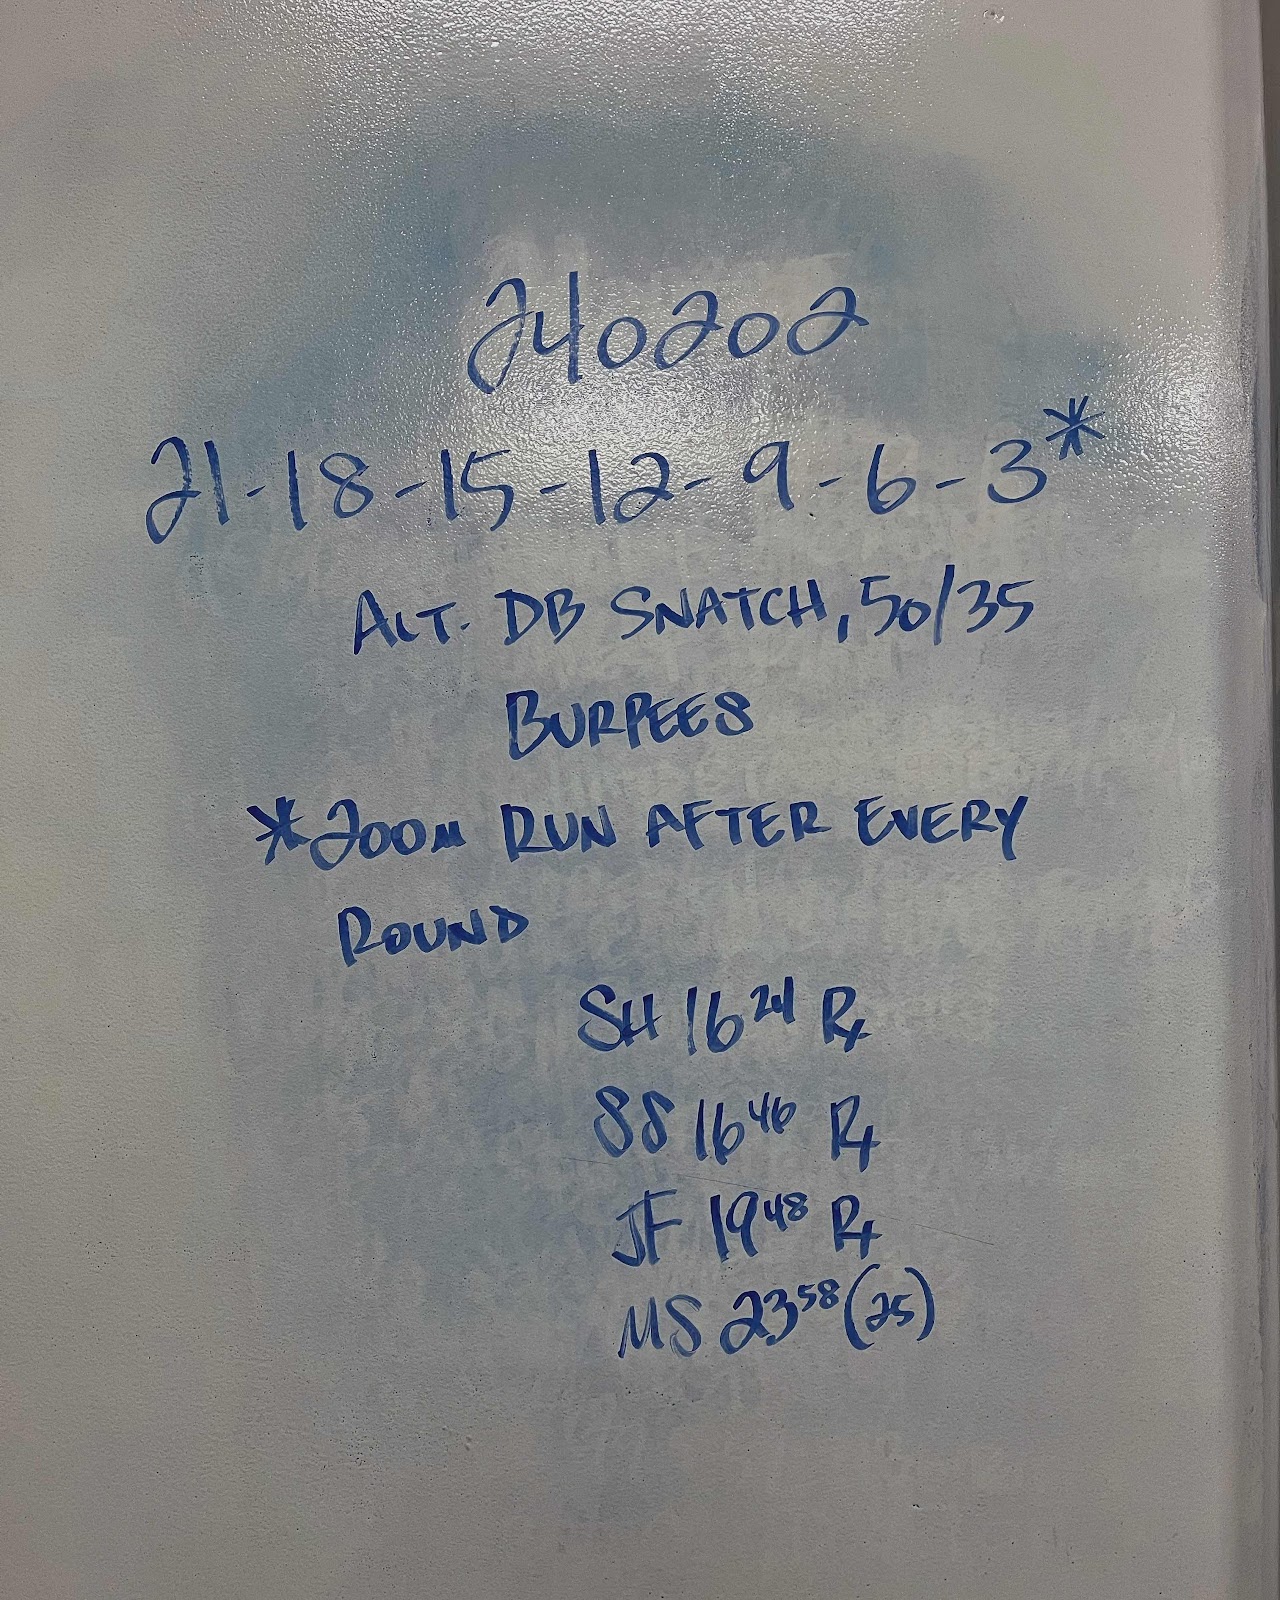 240202
21-18-15-12-9-6-3*
ALT. DB SNATCH, 50/35
BURPEES
*200M RUN AFTER EVERY
ROUND
SH 16 24 Rx
SS 16 46 Rx
JF 19 48 Rx
MS 23 58 (25)